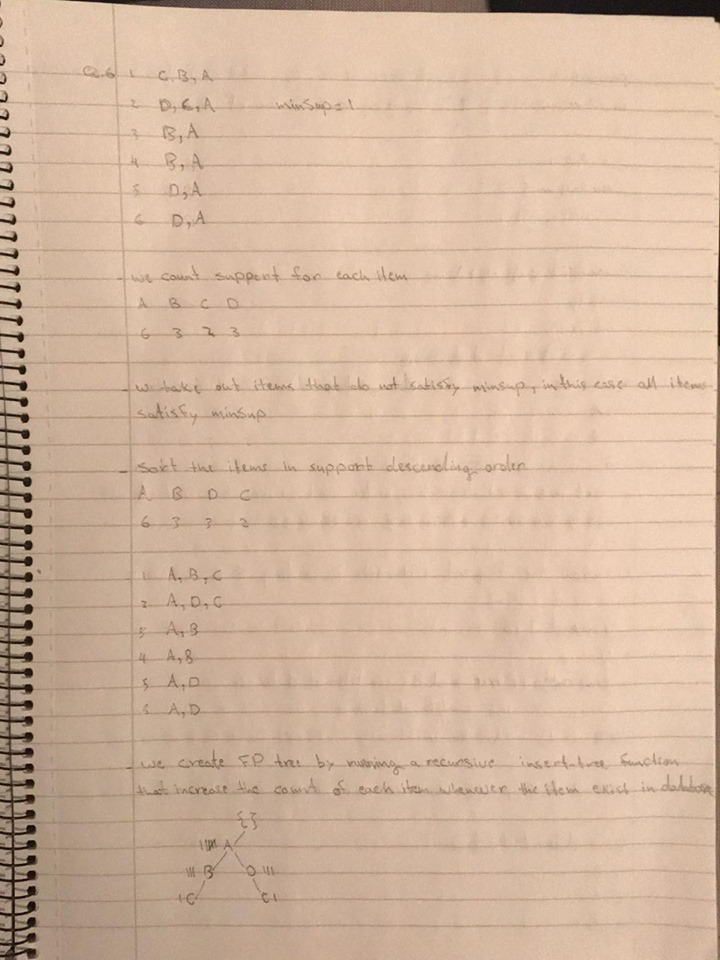 Q.6 1 C, B, A
2 D, C, A minsup=1
3 B, A
4 B, A
5 D, A
6 D, A
- we count support for each item
A B C D
6 3 2 3
- we take out items that do not satisfy minsup, in this case all items
satisfy minsup
- Sort the items in support descending order
A B D C
6 3 3 2
1 A, B, C
2 A, D, C
3 A, B
4 A, B
5 A, D
6 A, D
- we create FP tree by running a recursive insert-tree function
that increase the count of each item whenever the item exist in database
{}
A
III B D III
I C C I